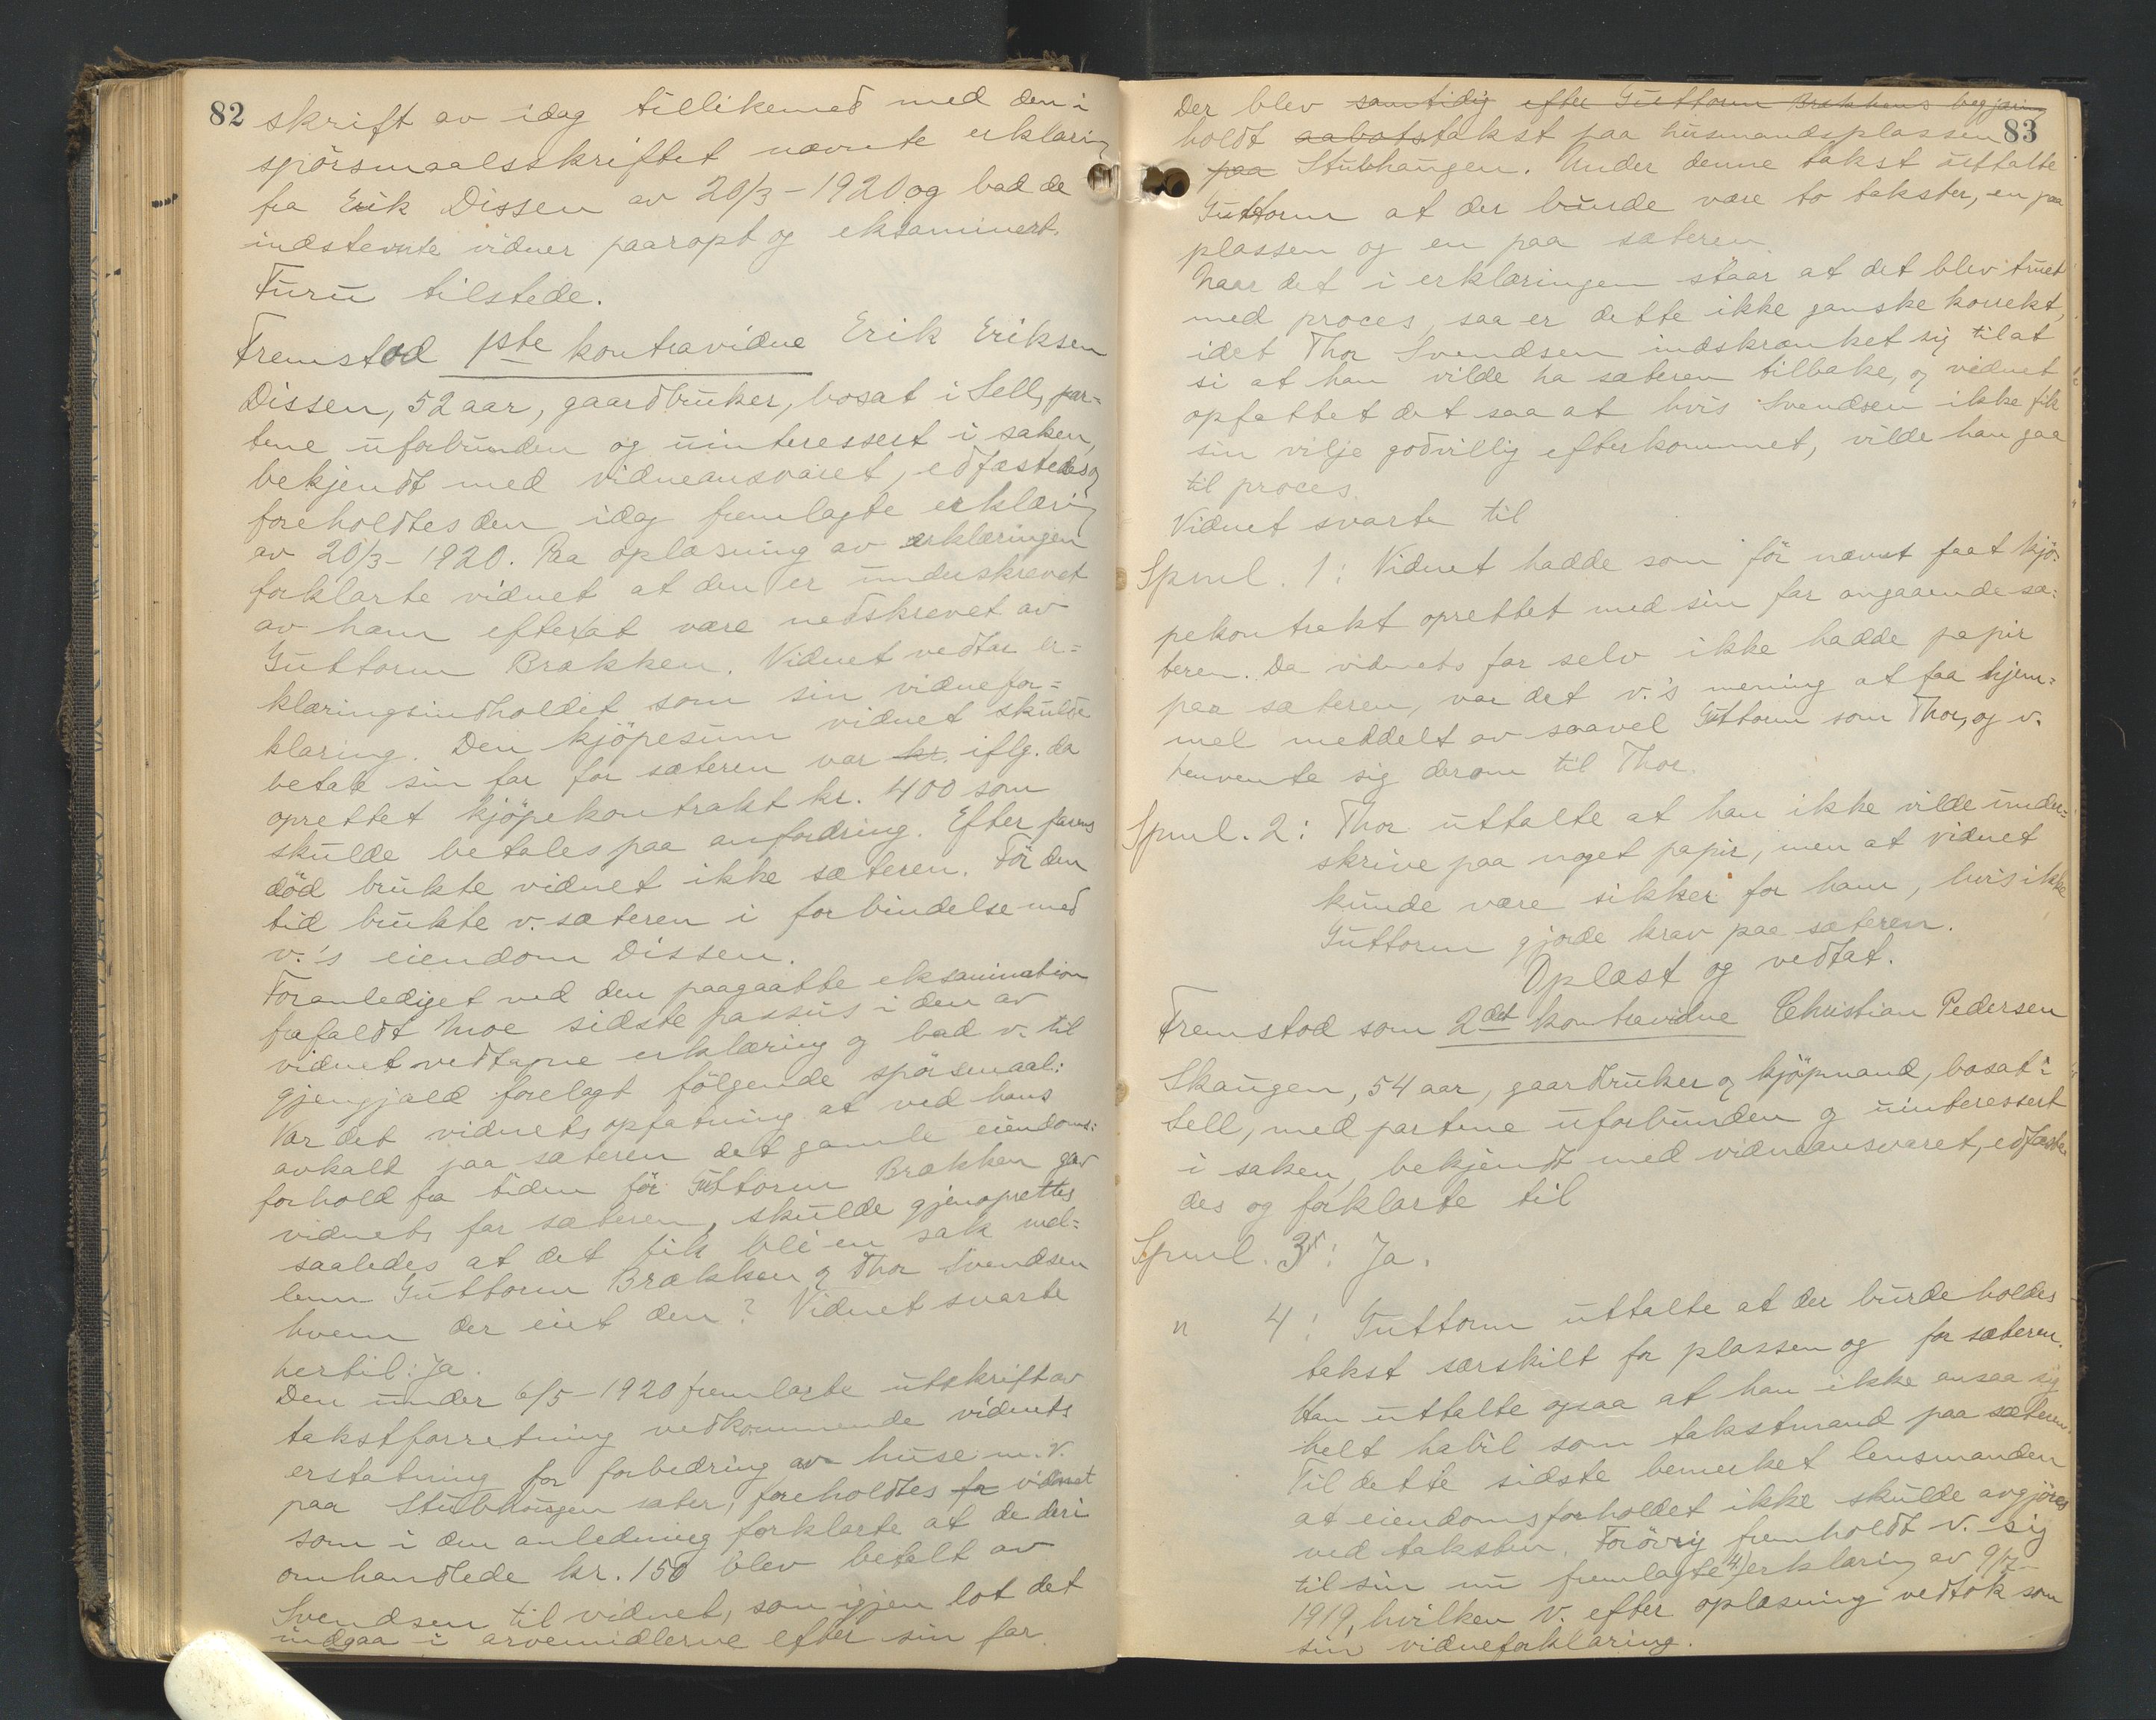 82
skrift av idag tillikemed med den i
spörsmaalsskriftet nævnte erklæring
fra Erik Dissen av 20/3-1920 og bad de
indstevnte vidner paaropt og eksaminert.
Furu tilstede.
Fremstod 1ste kontravidne Erik Eriksen
Dissen, 52 aar, gaardbruker, bosat i Sell, par=
tene uforbunden og uinteressert i saken,
bekjendt med vidneansvaret, edfæstedes og
foreholdtes den idag fremlagte erklæring
av 20/3-1920. Paa oplæsning av erklæringen
forklarte vidnet at den er underskrevet
av ham efter at være nedskrevet av
Guttorm Brækken. Vidnet vedtar er=
klæringsindholdet som sin vidnefor=
klaring. Den kjöpesum vidnet skulde
betale sin far for sæteren var kr. iflg. da
oprettet kjöpekontrakt kr. 400 som
skulde betales paa anfordring. Efter farens
död brukte vidnet ikke sæteren. För den
tid brukte v. sæteren i forbindelse med
v.'s eiendom Dissen.
Foranlediget ved den paagaatte eksamination
frafaldt Moe sidste passus i den av
vidnet vedtagne erklæring og bad v. til
gjengjæld forelagt fölgende spörsmaal:
Var det vidnets opfatning at ved hans
avkald paa sæteren det gamle eiendoms=
forhold fra tiden för Guttorm Brækken gav
vidnets far sæteren, skulde gjenoprettes
saaledes at det fik bli en sak mel=
lem Guttorm Brækken og Thor Svendsen
hvem der eiet den? Vidnet svarte
hertil: Ja.
Den under 6/5-1920 fremlagte utskrift av
takstforretning vedkommende vidnets
erstatning for forbedring av huse m.v.
paa Stubhaugen sæter, foreholdtes for vidnet
som i den anledning forklarte at de deri
omhandlede kr. 150 blev betalt av
Svendsen til vidnet, som igjen lot det
indgaa i arvemidlerne efter sin far.
83
Der blev samtidig efter Guttorm Brækkens begjæring
holdt aabotstakst paa husmandsplassen
paa Stubhaugen. Under denne takst uttalte
Guttorm at der burde være to takster, en paa
plassen og en paa sæteren.
Naar det i erklæringen staar at det blev truet
med proces, saa er dette ikke ganske korrekt,
idet Thor Svendsen indskrænket sig til at
si at han vilde ha sæteren tilbake, og vidnet
opfattet det saa at hvis Svendsen ikke fik
sin vilje godvillig efterkommet, vilde han gaa
til proces.
Vidnet svarte til
Spml. 1: Vidnet hadde som för nævnt faat kjö=
pekontrakt oprettet med sin far angaaende sæ=
teren. Da vidnets far selv ikke hadde papir
paa sæteren, var det v.'s mening at faa hjem=
mel meddelt av saavel Guttorm som Thor, og v.
henvendte sig derom til Thor.
Spml. 2: Thor uttalte at han ikke vilde under=
skrive paa noget papir, men at vidnet
kunde være sikker for ham, hvis ikke
Guttorm gjorde krav paa sæteren.
Oplæst og vedtat.
Fremstod som 2det kontravidne Christian Pedersen
Skaugen, 54 aar, gaardbruker og kjöpmand, bosat i
Sell, med partene uforbunden og uinteressert
i saken, bekjendt med vidneansvaret, edfæste=
des og forklarte til
Spml. 3: Ja.
" 4: Guttorm uttalte at der burde holdes
takst særskilt for plassen og for sæteren.
Han uttalte ogsaa at han ikke ansaa sig
helt habil som takstmand paa sæteren.
Til dette sidste bemerket lensmanden
at eiendomsforholdet ikke skulde avgjöres
ved taksten. Forövrig fremholdt v. sig
til sin nu fremlagte 14) erklæring av 9/12-
1919, hvilken v. efter oplæsning vedtok som
sin vidneforklaring.